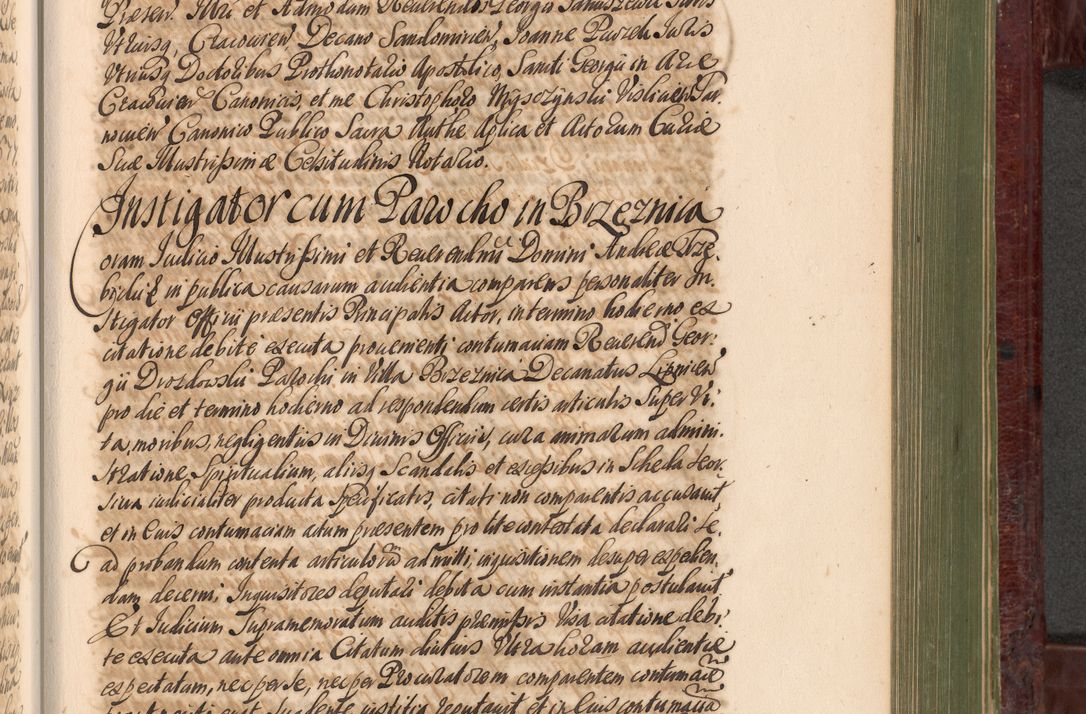 Præsen. Illri et Admodum Reuerendis Georgio Januszewski Juris
Vtriusq, Cracouien Decano Sandomirien, Joanne Purzeck Juris
Vtriusq Doctoribus Prothonotario Apostolico, Sancti Georgii in Arce
Cracouien Canonicis, et me Christophoro Mysczynski Vislicien Tar-
nouien Canonico Publico Sacra Authe Aplica et Actorum Curiæ
Suæ Illustrissimæ Celsitudinis Notario.
Instigator cum Parocho in Brzeznica
Coram Iudicio Illustrissimi et Reuerendmi Domini Andreæ Trze-
bicki & in publica causarum audientia comparens personaliter In-
stigator Officii præsentis Principalis Actor, in termino hodierno ex
citatione debite executa prouenienti contumaciam Reuerend Geor-
gii Drozdowski Parochi in Villa Brzeznica Decanatus Lipnicen
pro die et termino hodierno ad respondendum certis articulis Super Vi-
ta, moribus, negligentiis in Diuinis Officiis, cura animarum admini-
stratione, Spiritualium, aliisq Scandalis et excessibus in Scheda seor-
siua iudicialiter producta specificatis, citati non comparentis accusauit
et in Eius contumaciam actum præsentem pro lite contestata declarari se-
ad probandum contenta articulorum admitti, inquisitionem desuper expedien-
dam decerni, Inquisitores deputari debita cum instantia postulauit
Et Iudicium Supramemoratum auditis præmissis Visa citatione debi-
te executa ante omnia Citatum diutius Vltra horam audientiæ
expectatam, nec per se, nec per Procuratorem comparentem contumacem
suadente iustitia reputauit et in Eius contumacia